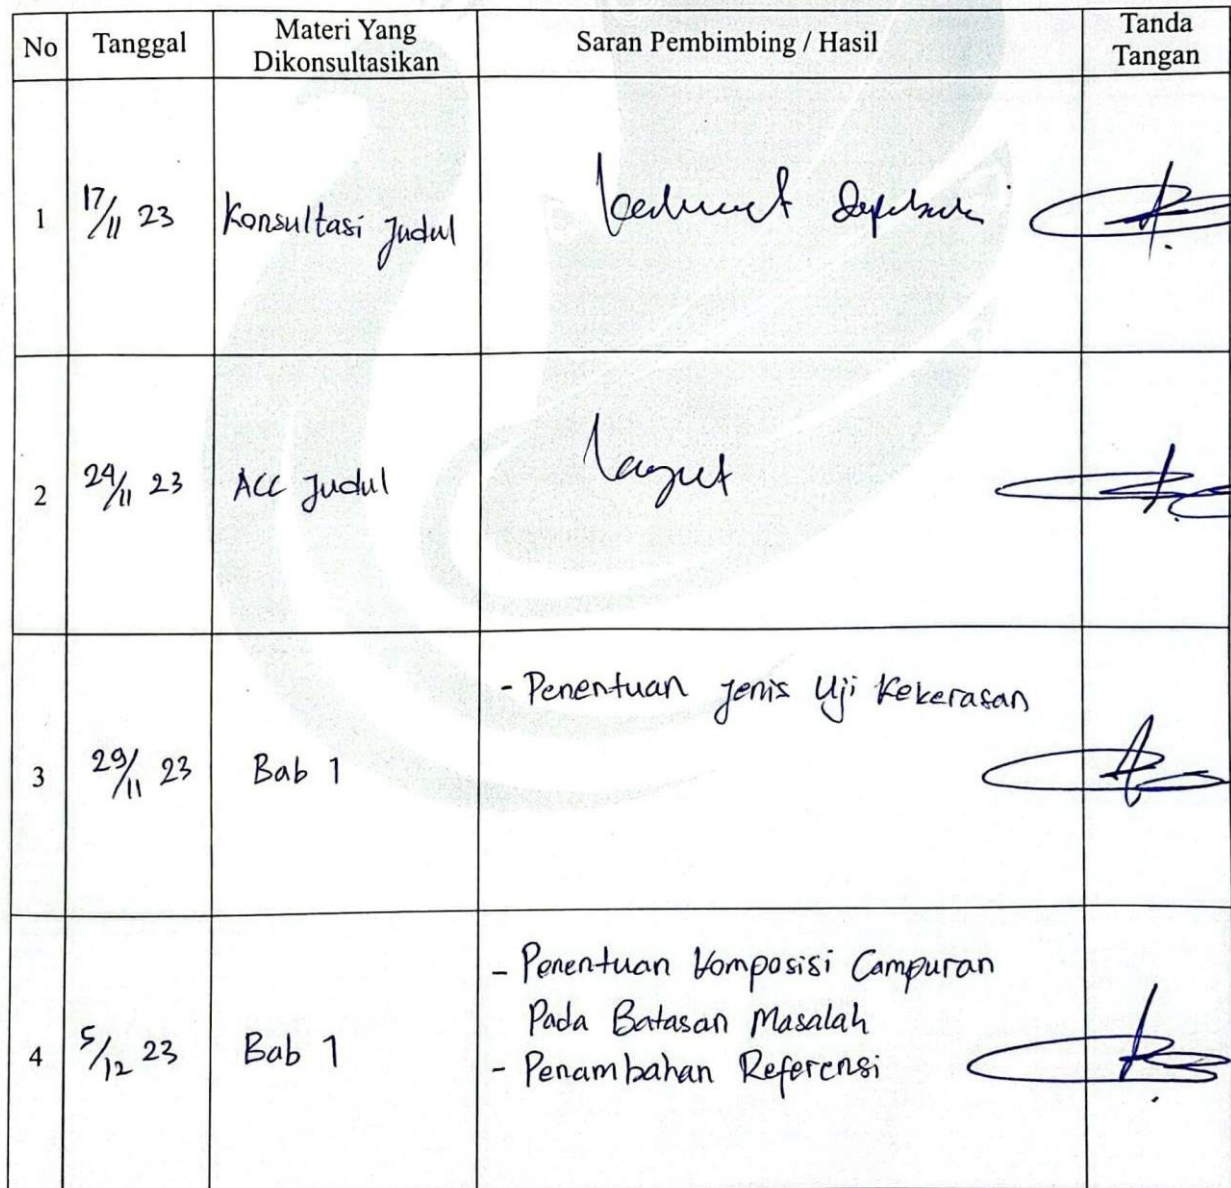 No
Tanggal
Materi Yang
Dikonsultasikan
Saran Pembimbing / Hasil
Tanda
Tangan
1
17/11 23
Konsultasi Judul
2
24/11 23
ACC Judul
3
29/11 23
Bab 1
- Penentuan Jenis Uji Kekerasan
4
5/12 23
Bab 1
- Penentuan Komposisi Campuran
Pada Batasan Masalah
- Penambahan Referensi